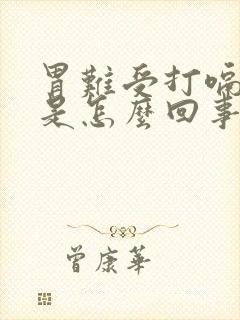 胃難受打嗝
是怎麼回事
曾康華